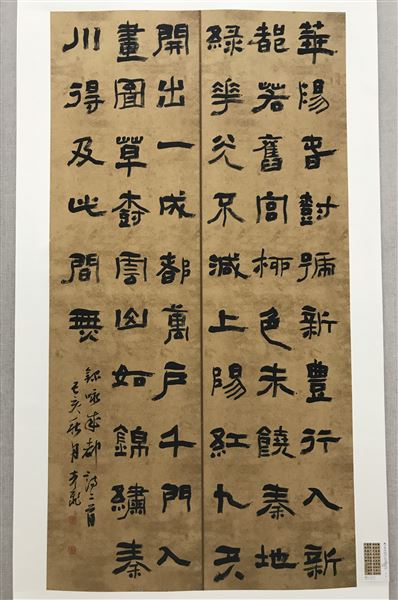 華陽春樹號新豐行入新
都若舊宮柳色未饒秦地
綠花光不減上陽紅九天
開出一成都萬戶千門入
畫圖草樹雲山如錦繡秦
川得及此間無
錄咏成都詩二首
己亥秋月